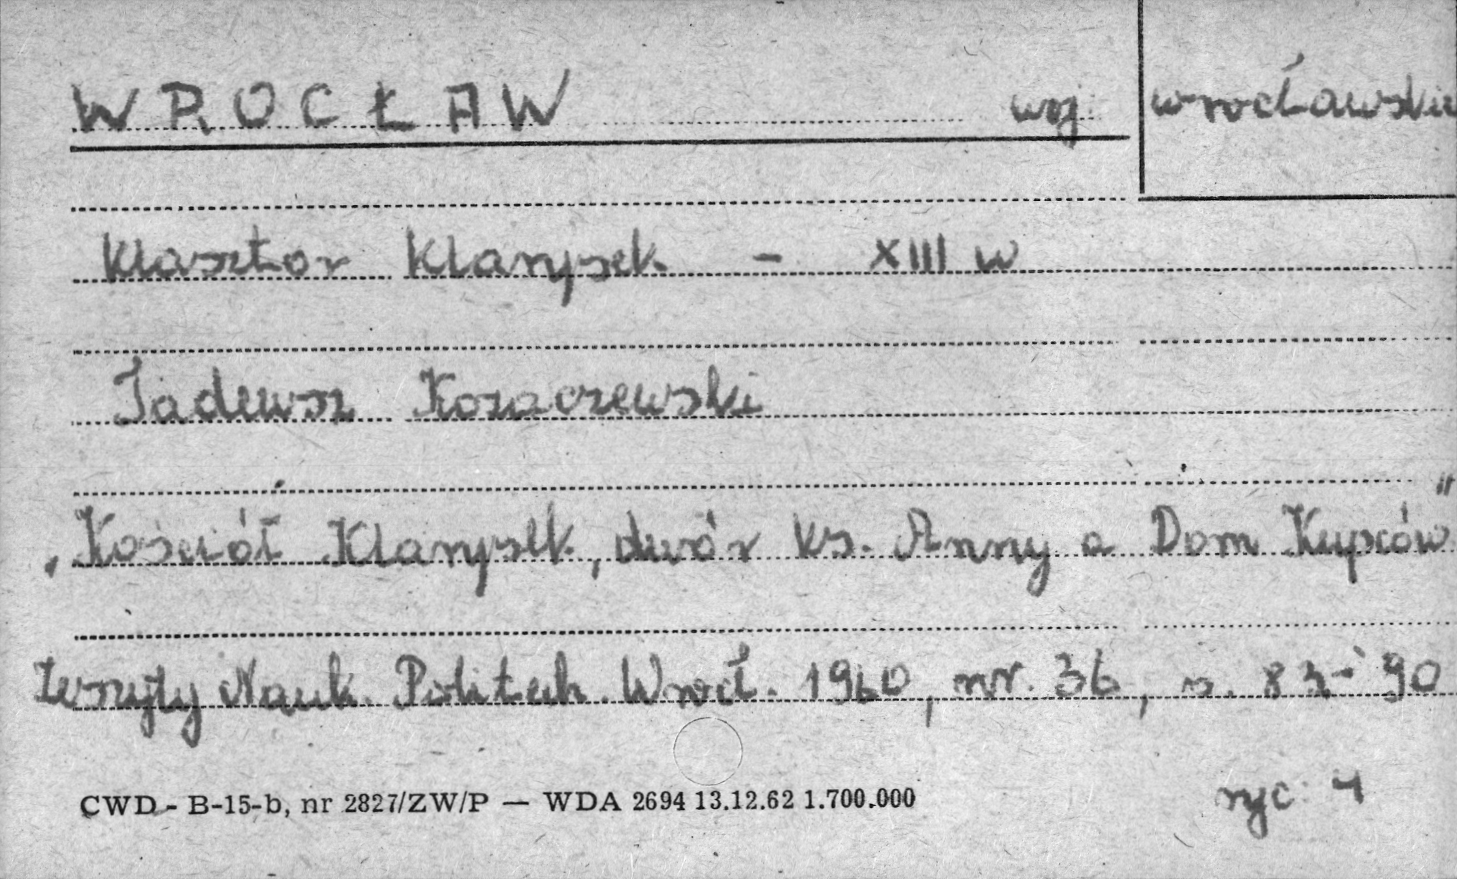 WROCŁAW woj. wrocławskie
Klasztor Klarysek - XIII w
Tadeusz Kozaczewski
"Kościół Klarysek, dwór ks. Anny a Dom Kupców"
Zeszyty Nauk. Politech. Wrocł. 1960, nr. 36, s. 83-90
ryc. 4
CWD - B-15-b, nr 2827/ZW/P — WDA 2694 13.12.62 1.700.000